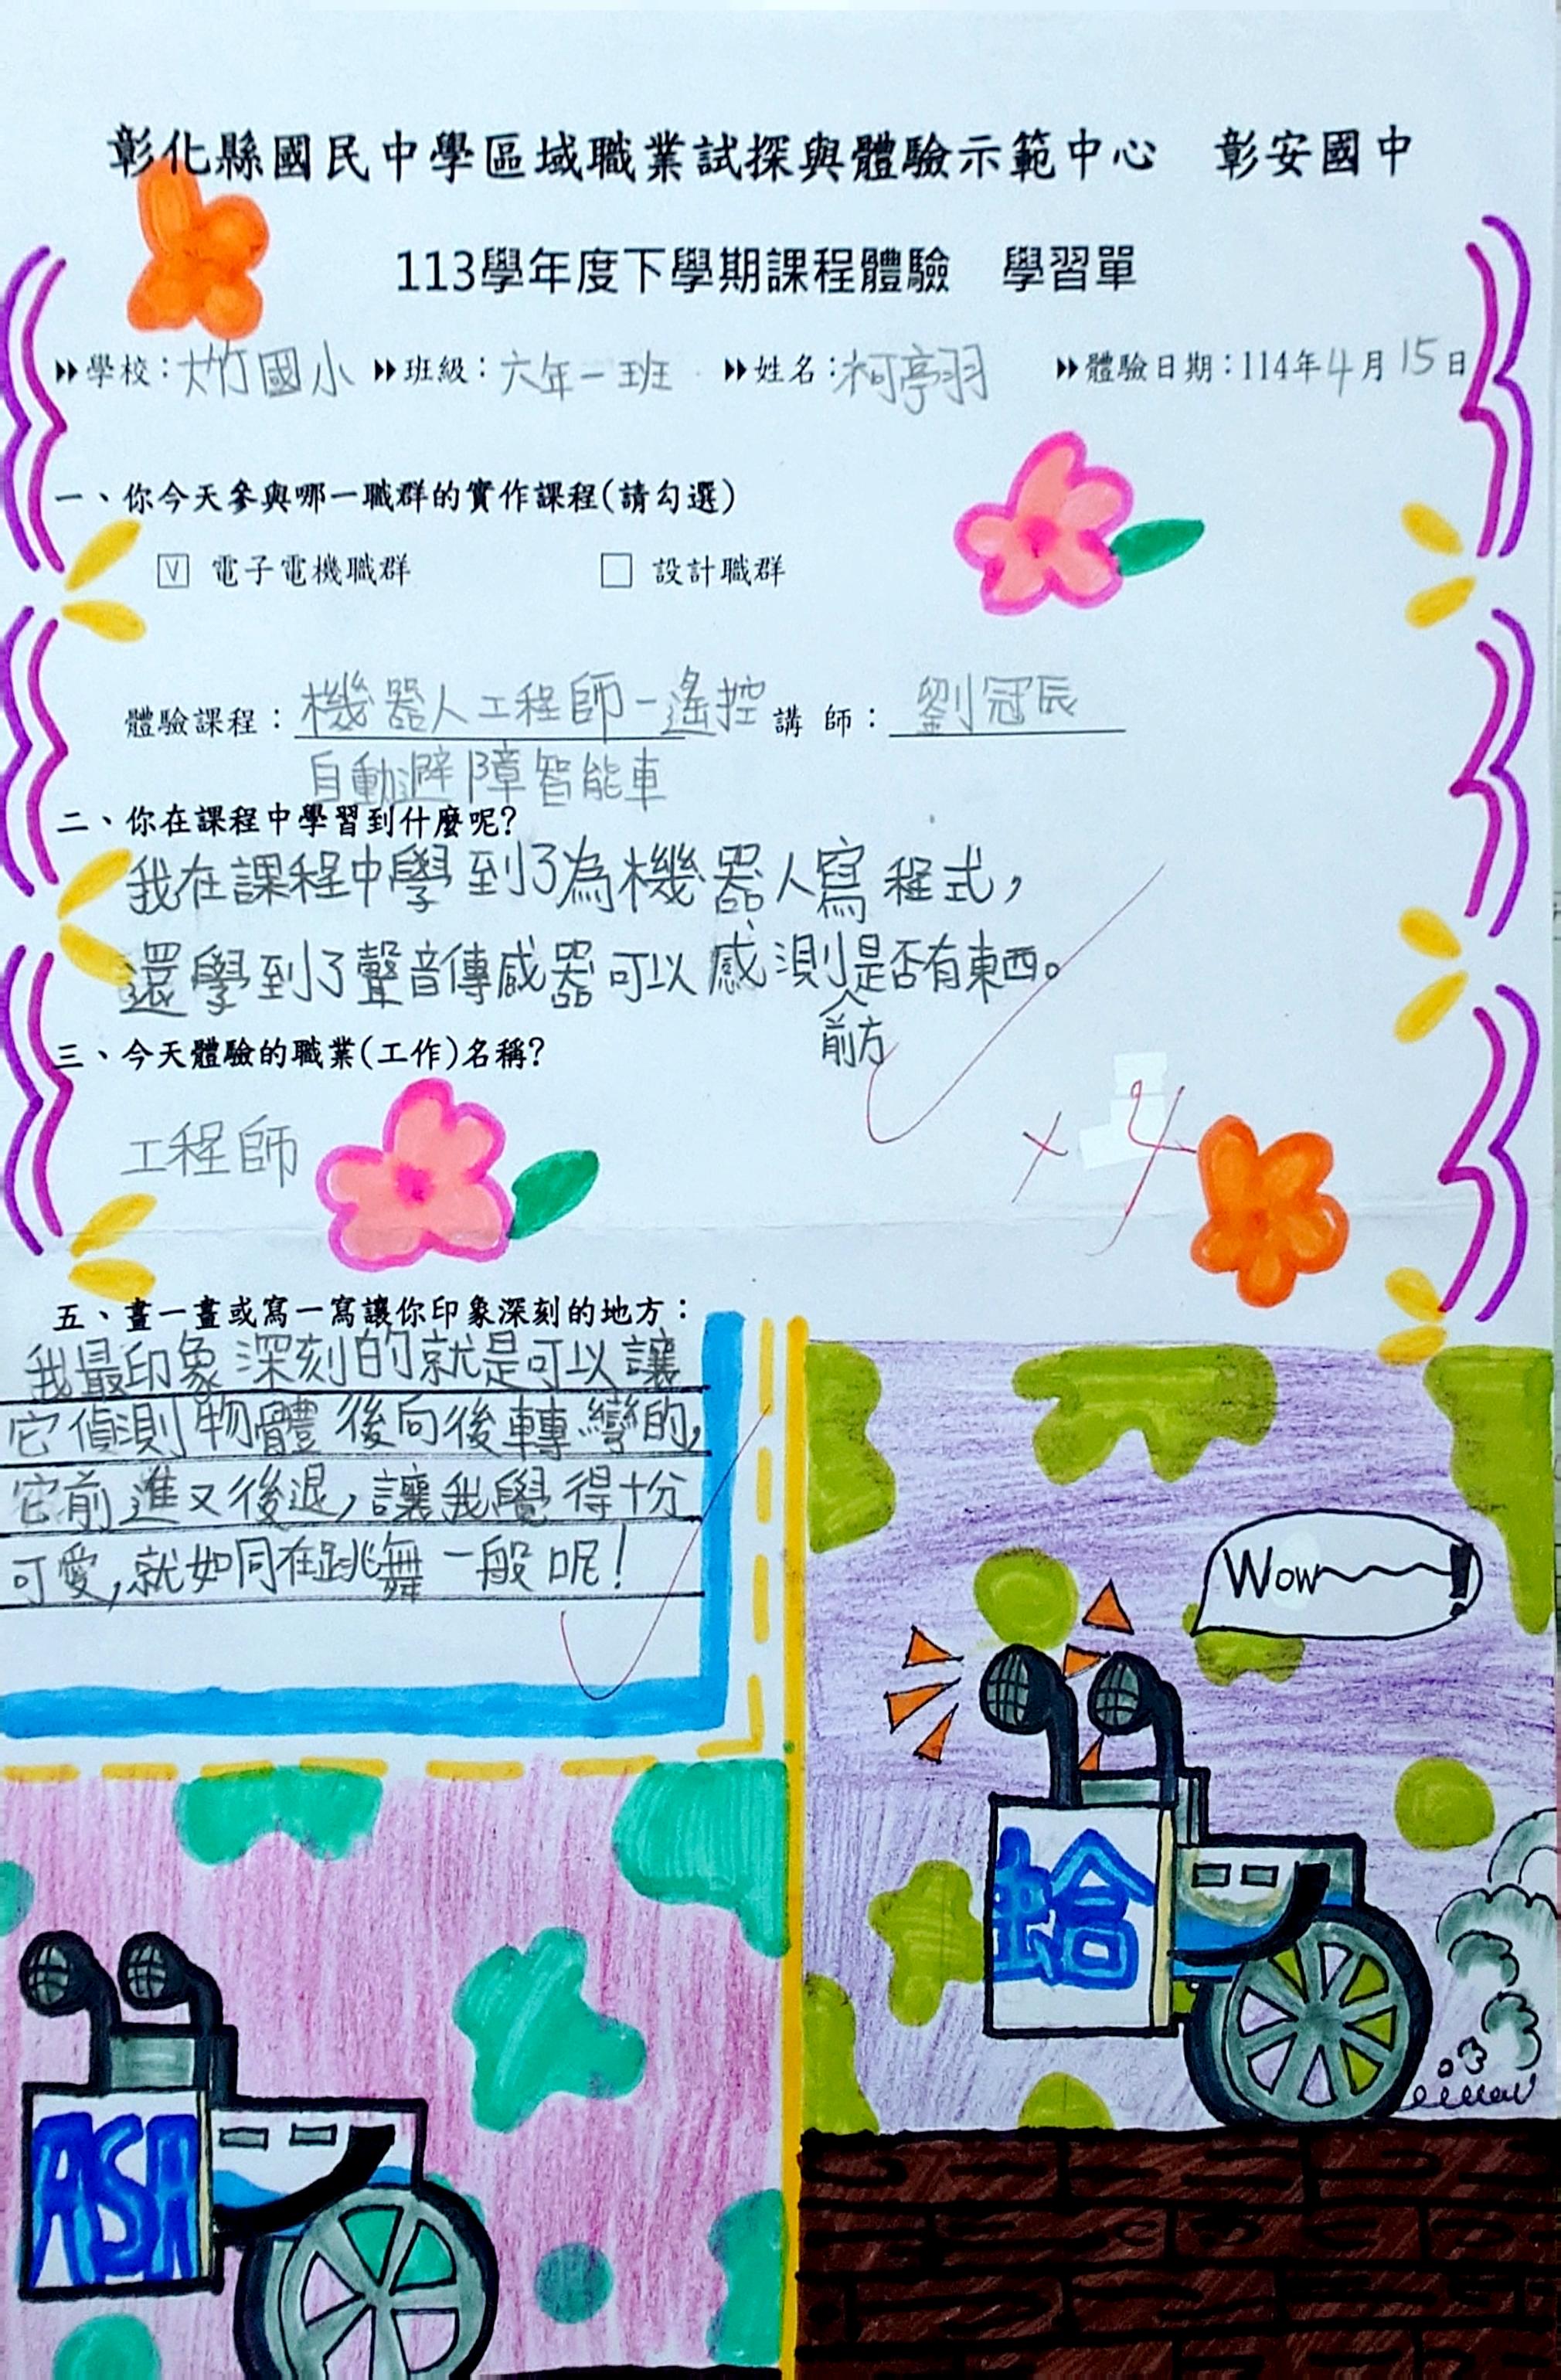 彰化縣國民中學區域職業試探與體驗示範中心 彰安國中
113學年度下學期課程體驗 學習單
學校：大竹國小 班級：六年一班 姓名：柯亭羽 體驗日期：114年4月15日
一、你今天參與哪一職群的實作課程(請勾選)
V 電子電機職群 □ 設計職群
體驗課程：機器人工程師-遙控 講 師：劉冠辰
自動避障智能車
二、你在課程中學習到什麼呢?
我在課程中學到了為機器人寫程式，
還學到了聲音傳感器可以感測是否有東西。
前方
三、今天體驗的職業(工作)名稱?
工程師
+4
五、畫一畫或寫一寫讓你印象深刻的地方：
我最印象深刻的就是可以讓
它偵測物體後向後轉彎的，
它前進又後退，讓我覺得十分
可愛，就如同在跳舞一般呢！
Wow~~!
蛤
ASA